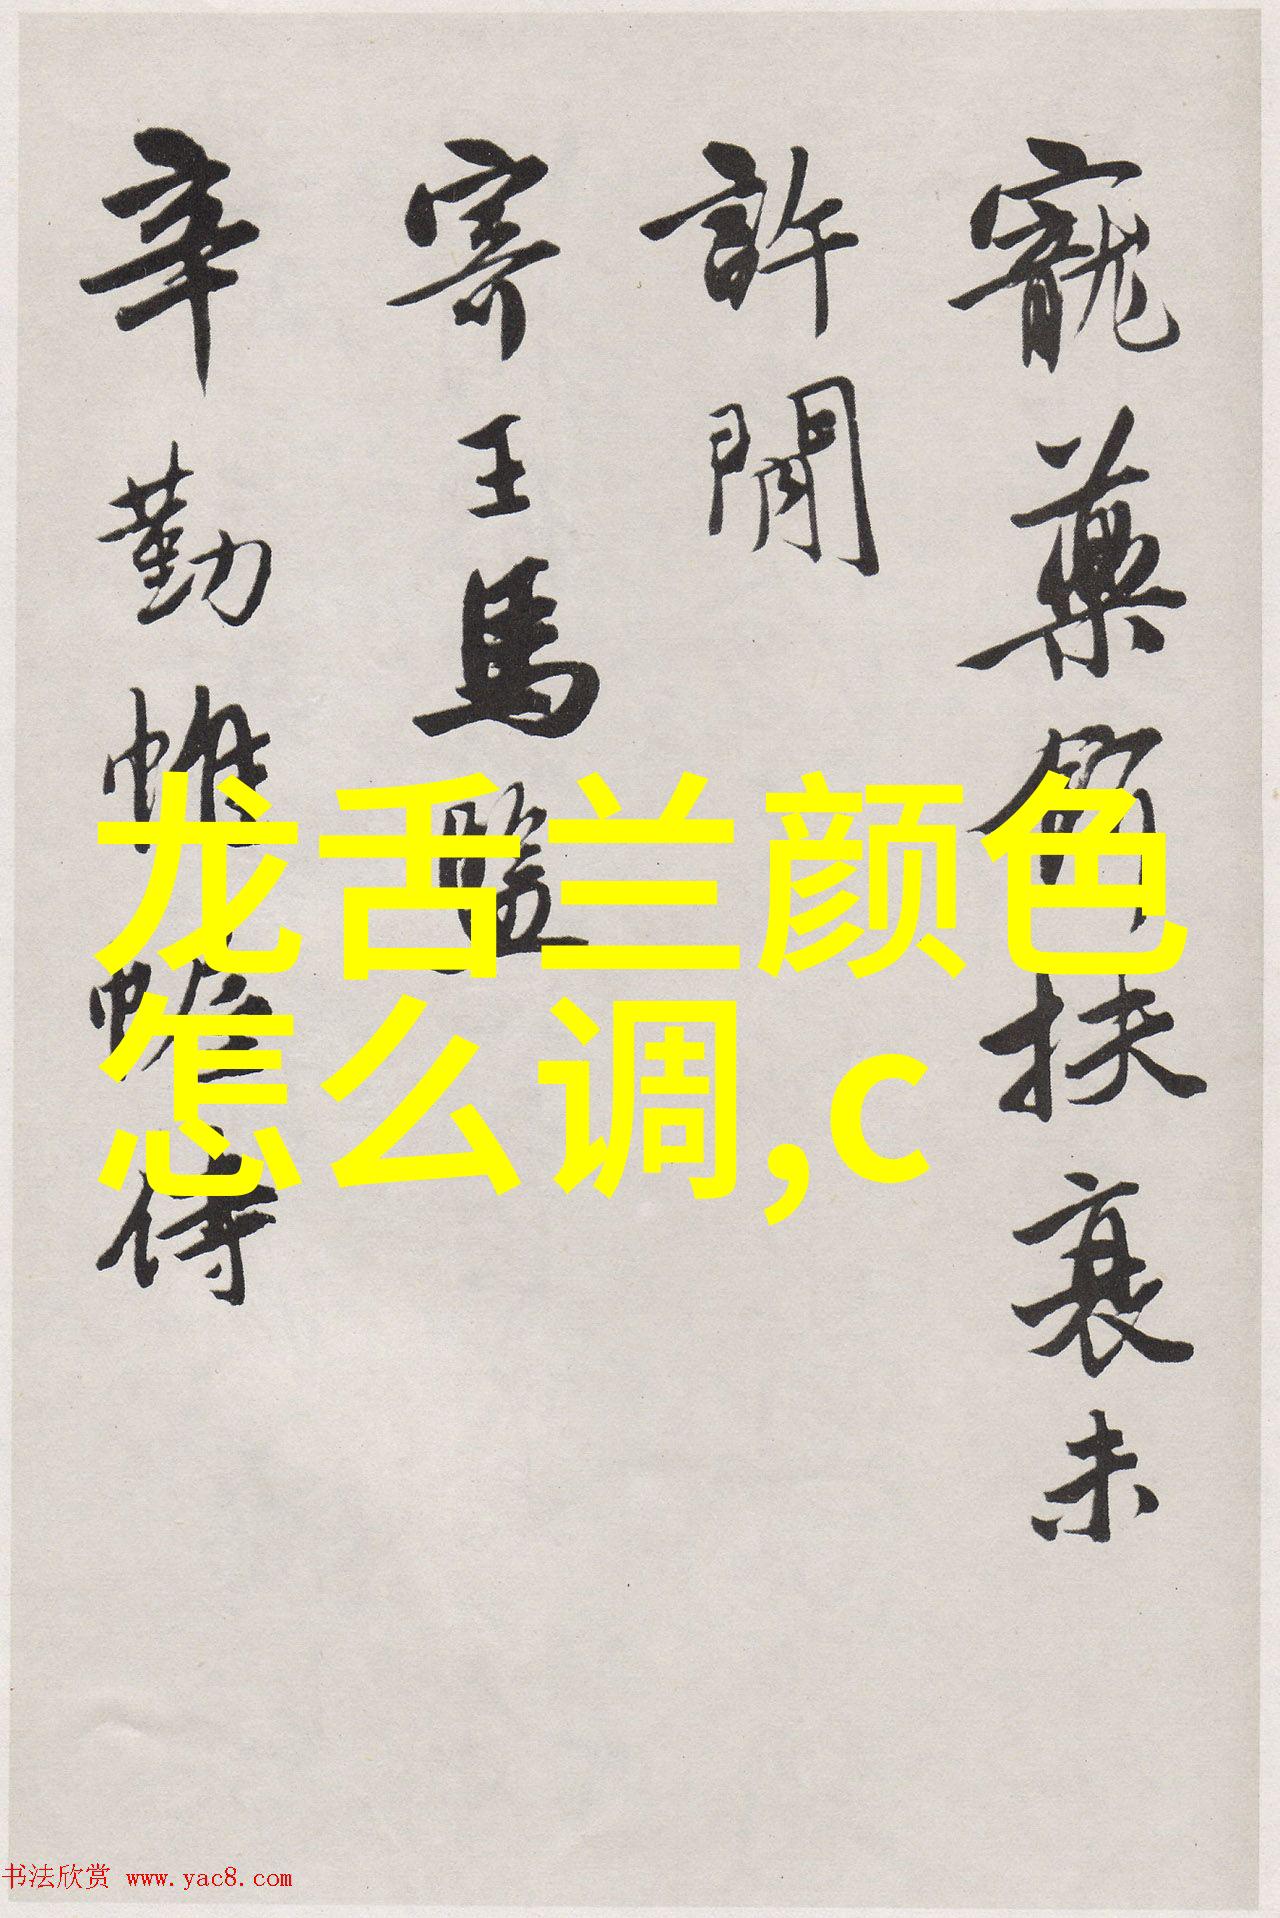 寵藥餌扶衰未
許閒
寄王馬監
辛勤帷幄侍
龙舌兰颜色
怎么调,c
书法欣赏 www.yac8.com